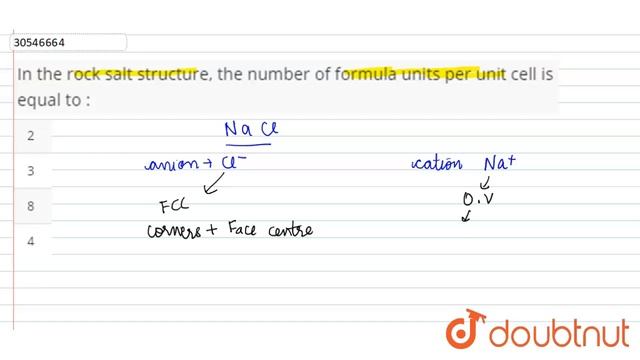 30546664
In the rock salt structure, the number of formula units per unit cell is
equal to :
2
3
8
4
NaCl
anion → Cl⁻
cation Na⁺
FCC
O.V
corners + Face centre
doubtnut